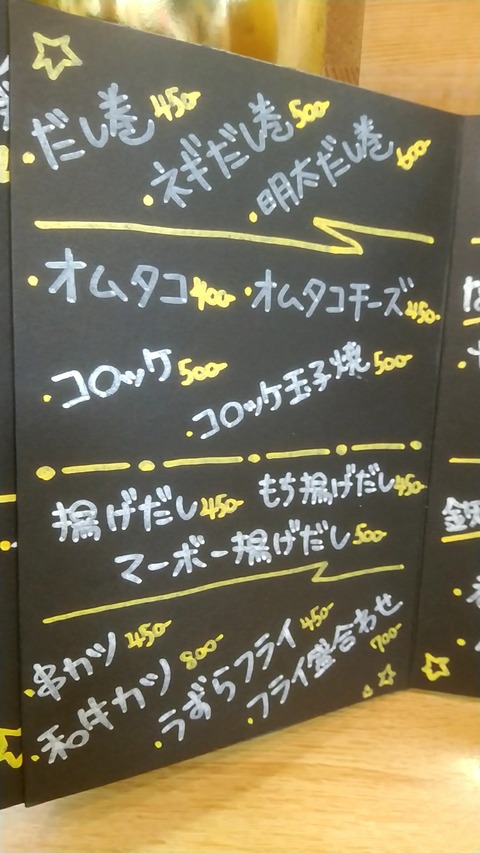 ・だし巻 450-
・ネギだし巻 500-
・明太だし巻 600-
・オムタコ 400-
・オムタコチーズ 450-
・コロッケ 500-
・コロッケ玉子焼 500-
揚げだし 450-
もち揚げだし 450-
マーボー揚げだし 500-
・串カツ 450-
・和牛カツ 800-
・うずらフライ 450-
・フライ盛合わせ 700-